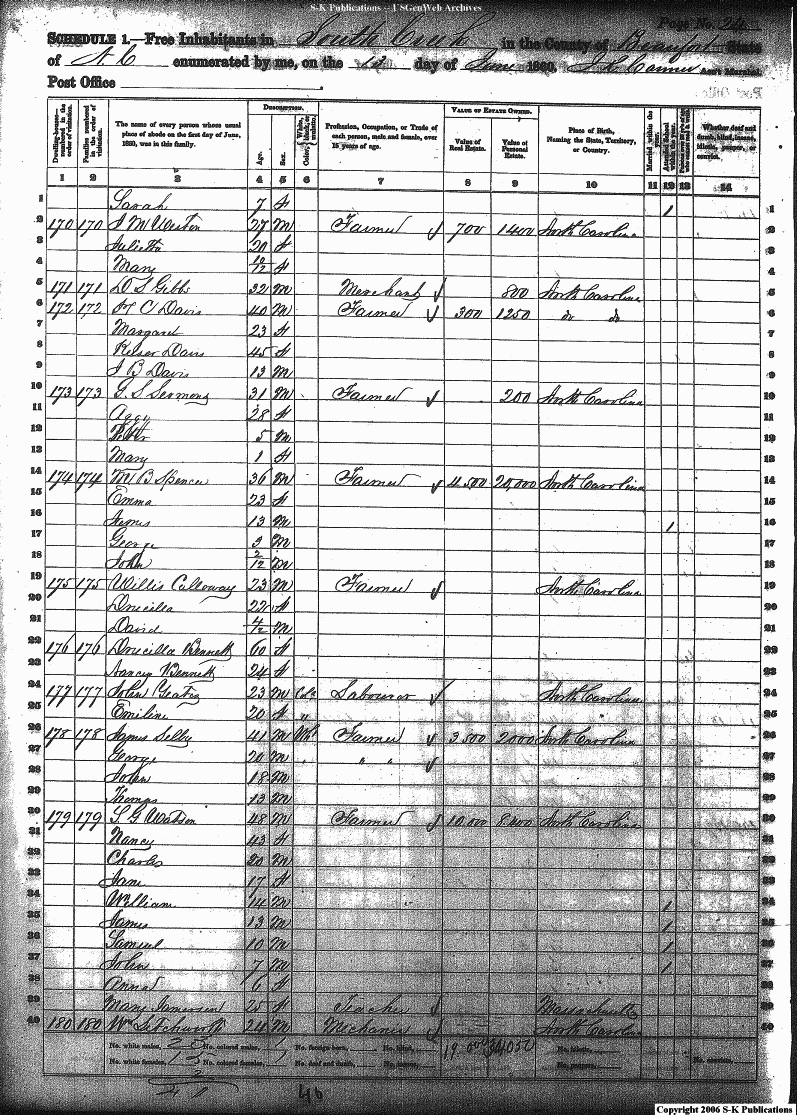 S-K Publications -- USGenWeb Archives
Page No. 24
SCHEDULE 1.—Free Inhabitants in South Creek in the County of Beaufort State
of N C enumerated by me, on the 13 day of June 1860. Ass't Marshal.
Post Office
Dwelling-houses numbered in the order of visitation. Families numbered in the order of visitation. The name of every person whose usual place of abode on the first day of June, 1860, was in this family. DESCRIPTION. Age. Sex. Color, White, black, or mulatto. Profession, Occupation, or Trade of each person, male and female, over 15 years of age. VALUE OF ESTATE OWNED. Value of Real Estate. Value of Personal Estate. Place of Birth, Naming the State, Territory, or Country. Married within the year. Attended School within the year. Whether deaf and dumb, blind, insane, idiotic, pauper, or convict.
1 2 3 4 5 6 7 8 9 10 11 12 13 14
1 Sarah 7 f 1 1
2 170 170 J M Weston 27 M Farmer 700 1400 North Carolina 2
3 Julietta 20 f 3
4 Mary 10/12 f 4
5 171 171 D S Gibbs 32 M Merchant 800 North Carolina 5
6 172 172 H C Davis 40 M Farmer 300 1250 do do 6
7 Margaret 23 f 7
8 Davis 45 f 8
9 J B Davis 13 M 9
10 173 173 G. S Sermons 31 M Farmer 200 North Carolina 10
11 Aggy 28 f 11
12 5 M 12
13 Mary 1 f 13
14 174 174 Wm B Spencer 36 M Farmer 4500 20,000 North Carolina 14
15 Emma 23 f 15
16 13 M 1 16
17 George 3 M 17
18 John 2/12 M 18
19 175 175 Willis Calloway 23 M Farmer North Carolina 19
20 Drucilla 22 f 20
21 David 4/12 M 21
22 176 176 Drucilla Bennett 60 f 22
23 Nancy Bennett 24 f 23
24 177 177 John 23 M Cold Labourer North Carolina 24
25 Emiline 20 f " 25
26 178 178 James Selby 41 M Wht Farmer 3500 2000 North Carolina 26
27 George 20 M " " 27
28 John 18 M 28
29 Thomas 13 M 29
30 179 179 S G Watson 48 M Farmer 10,000 North Carolina 30
31 Nancy 43 f 31
32 Charles 20 M 32
33 Jane 17 f 33
34 William 14 M 1 34
35 James 13 M 1 35
36 Samuel 10 M 1 36
37 John 7 M 1 37
38 Anna 6 f 38
39 Mary 25 f Teacher Massachusetts 39
40 180 180 Wm 24 M Mechanic North Carolina 40
No. white males, No. colored males, 1 No. foreign born, No. blind, No. idiotic,
No. white females, No. colored females, No. deaf and dumb, No. insane, No. paupers, No. convicts,
40
Copyright 2006 S-K Publications